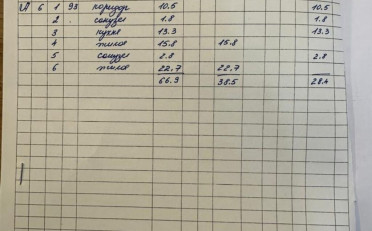 А 6 1 93 коридор 10.5 10.5
2 . санузел 1.8 1.8
3 кухня 13.3 13.3
4 жилая 15.8 15.8
5 санузел 2.8 2.8
6 жилая 22,7 22,7
66.9 38.5 28.4